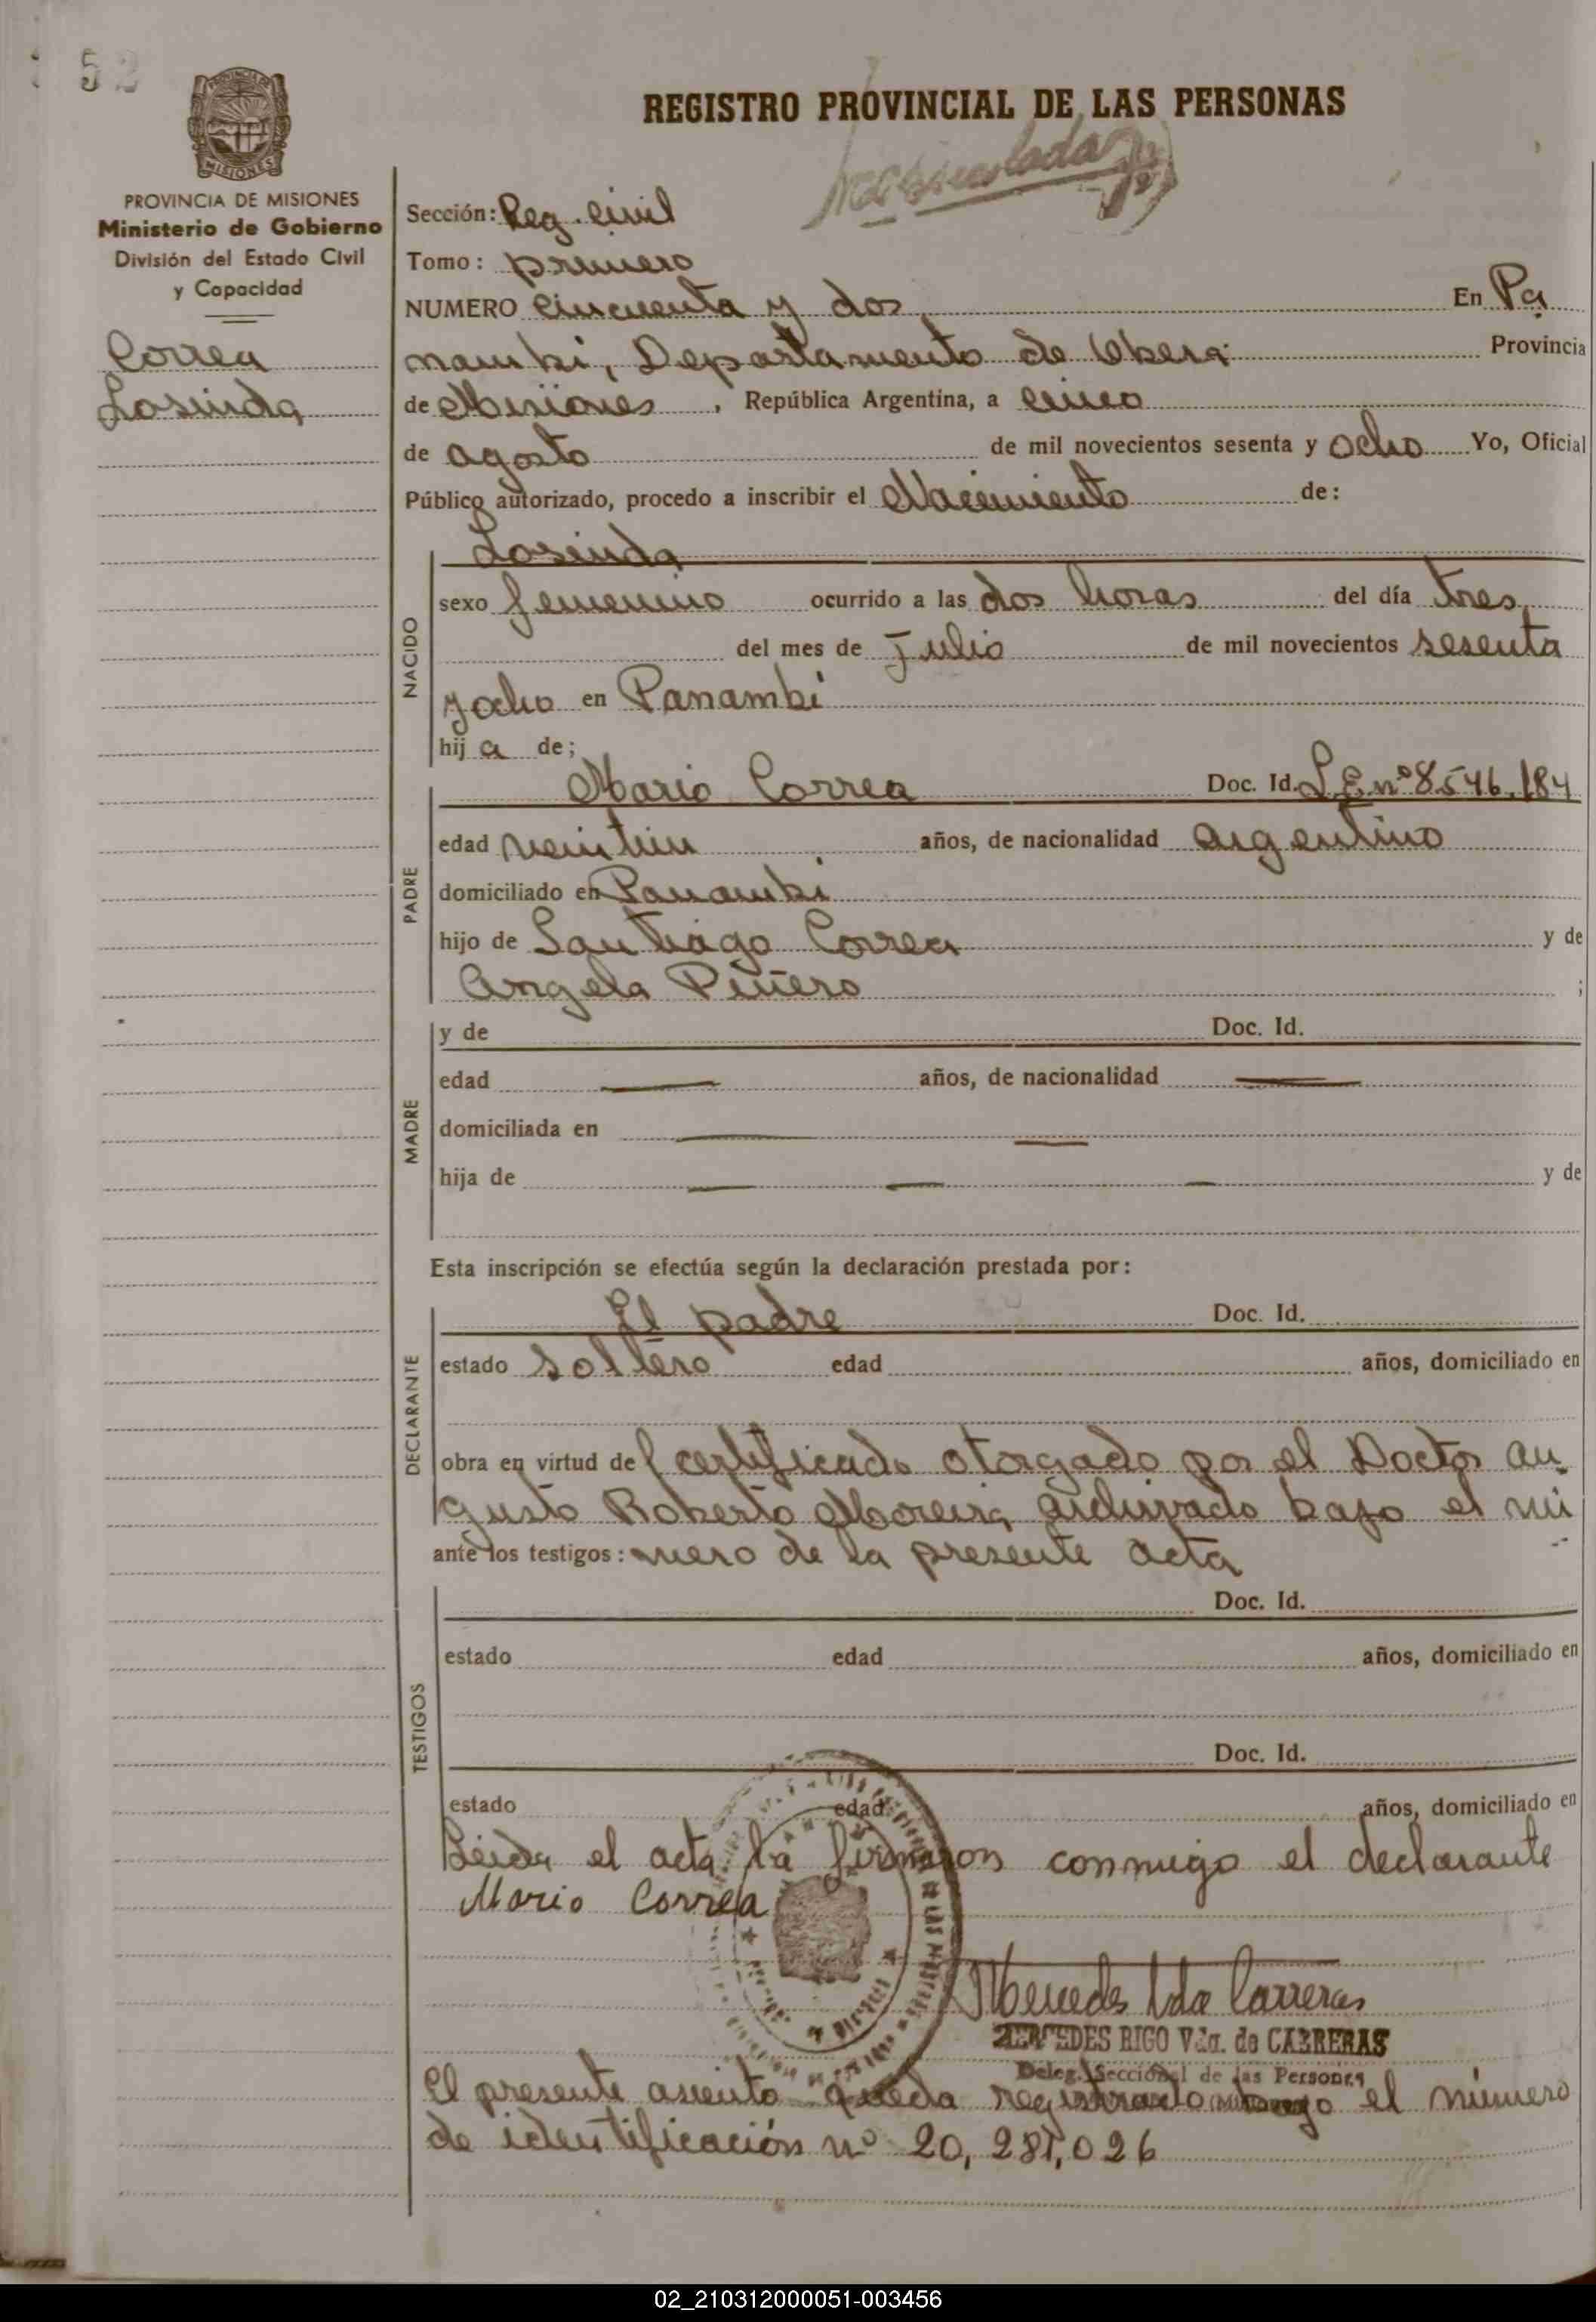 52
REGISTRO PROVINCIAL DE LAS PERSONAS
PROVINCIA DE MISIONES
MISIONES
PROVINCIA DE MISIONES
Ministerio de Gobierno
División del Estado Civil
y Capacidad
Correa
Losinda
Sección: Reg. Civil
Tomo: primero
NUMERO cincuenta y dos En Pa
nambi, Departamento de Obera Provincia
de Misiones, República Argentina, a cinco
de agosto de mil novecientos sesenta y ocho Yo, Oficial
Público autorizado, procedo a inscribir el Nacimiento de:
Losinda
NACIDO
sexo femenino ocurrido a las dos horas del día tres
del mes de Julio de mil novecientos sesenta
y ocho en Panambi
hija de;
PADRE
Mario Correa Doc. Id. L.E. nº 8.546.184
edad veintiun años, de nacionalidad argentino
domiciliado en Panambi
hijo de Santiago Correa y de
Angela Piñero ;
MADRE
y de Doc. Id.
edad — años, de nacionalidad —
domiciliada en — —
hija de — — — y de
Esta inscripción se efectúa según la declaración prestada por:
DECLARANTE
El padre Doc. Id.
estado soltero edad años, domiciliado en
obra en virtud de certificado otorgado por el Doctor Au
gusto Roberto Moreira archivado bajo el nú
ante los testigos: mero de la presente acta
TESTIGOS
Doc. Id.
estado edad años, domiciliado en
Doc. Id.
estado edad años, domiciliado en
Leida el acta la firmaron conmigo el declarante
Mario Correa
Mercedes Vda Carreras
MERCEDES RIGO Vda. de CARRERAS
Deleg. Seccional de las Personas
El presente asiento queda registrado bajo el número
de identificación nº 20,281,026
02_210312000051-003456